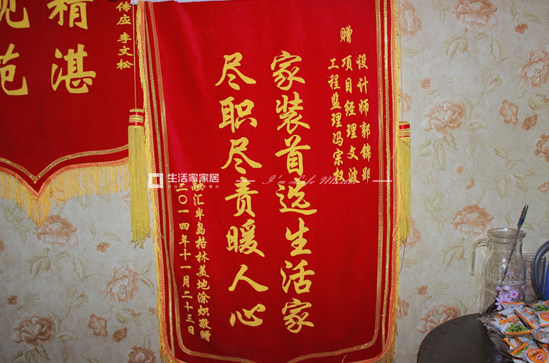 赠
设计师郭锦
项目经理文波
工程监理冯宗权
家装首选生活家
尽职尽责暖人心
融汇半岛格林美地涂炽敬赠
二〇一四年十一月二十三日
李文松
精湛
范
生活家家居